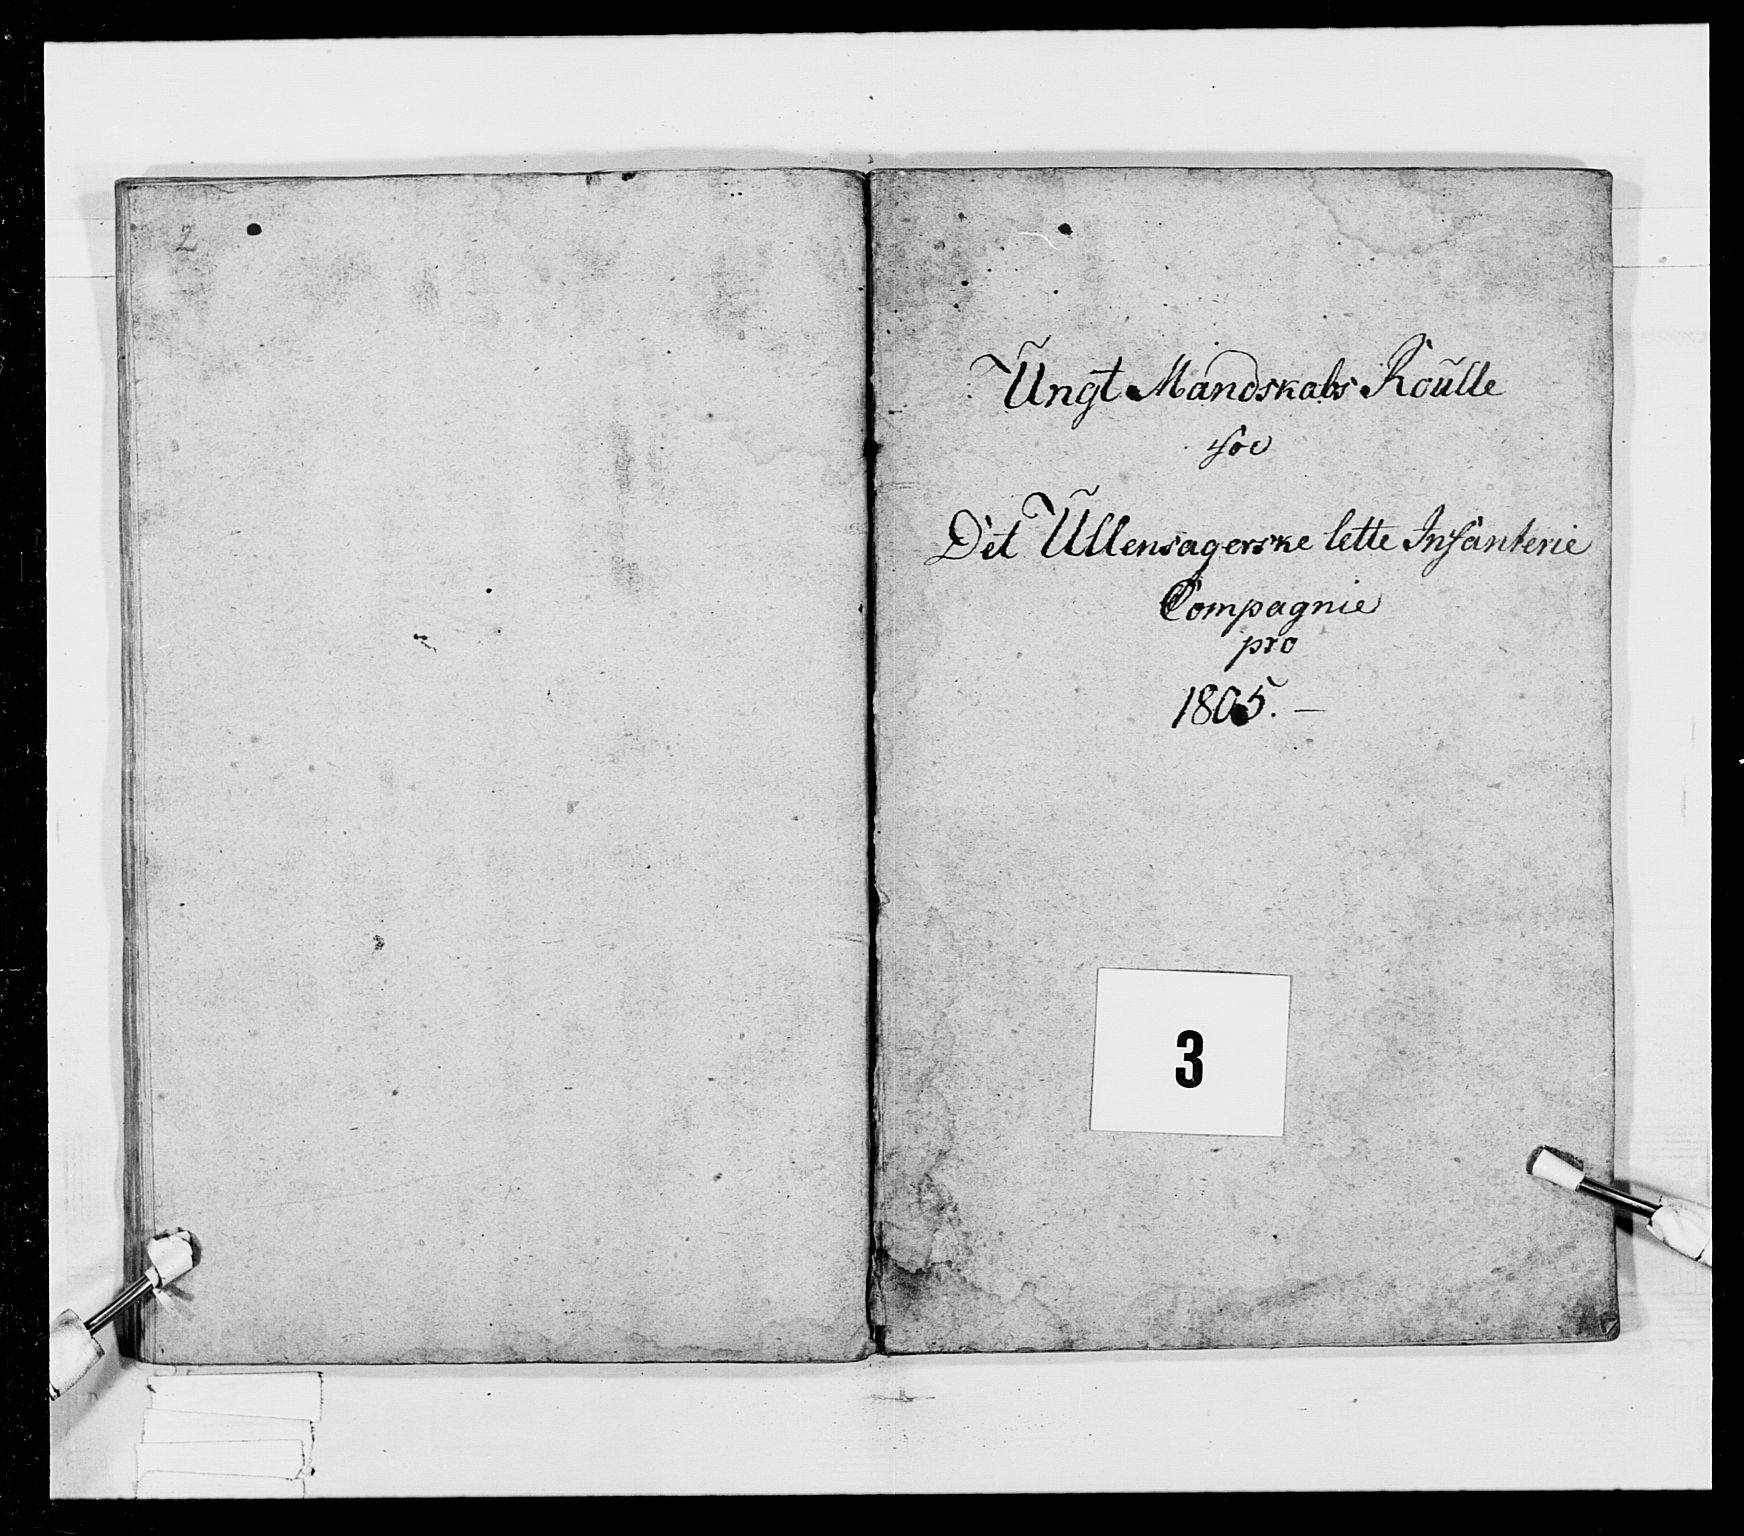 2
Ungt Mandskabs Roulle
for
Det Ullensagerske lette Infanterie
Compagnie
pro
1805. —
3